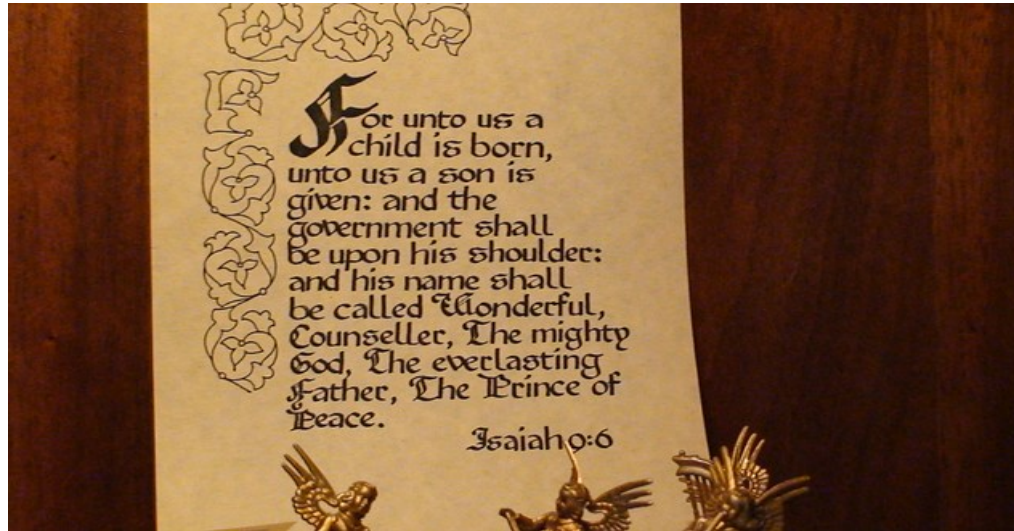 For unto us a
child is born,
unto us a son is
given: and the
government shall
be upon his shoulder:
and his name shall
be called Wonderful,
Counseller, The mighty
God, The everlasting
Father, The Prince of
Peace.
Isaiah 9:6